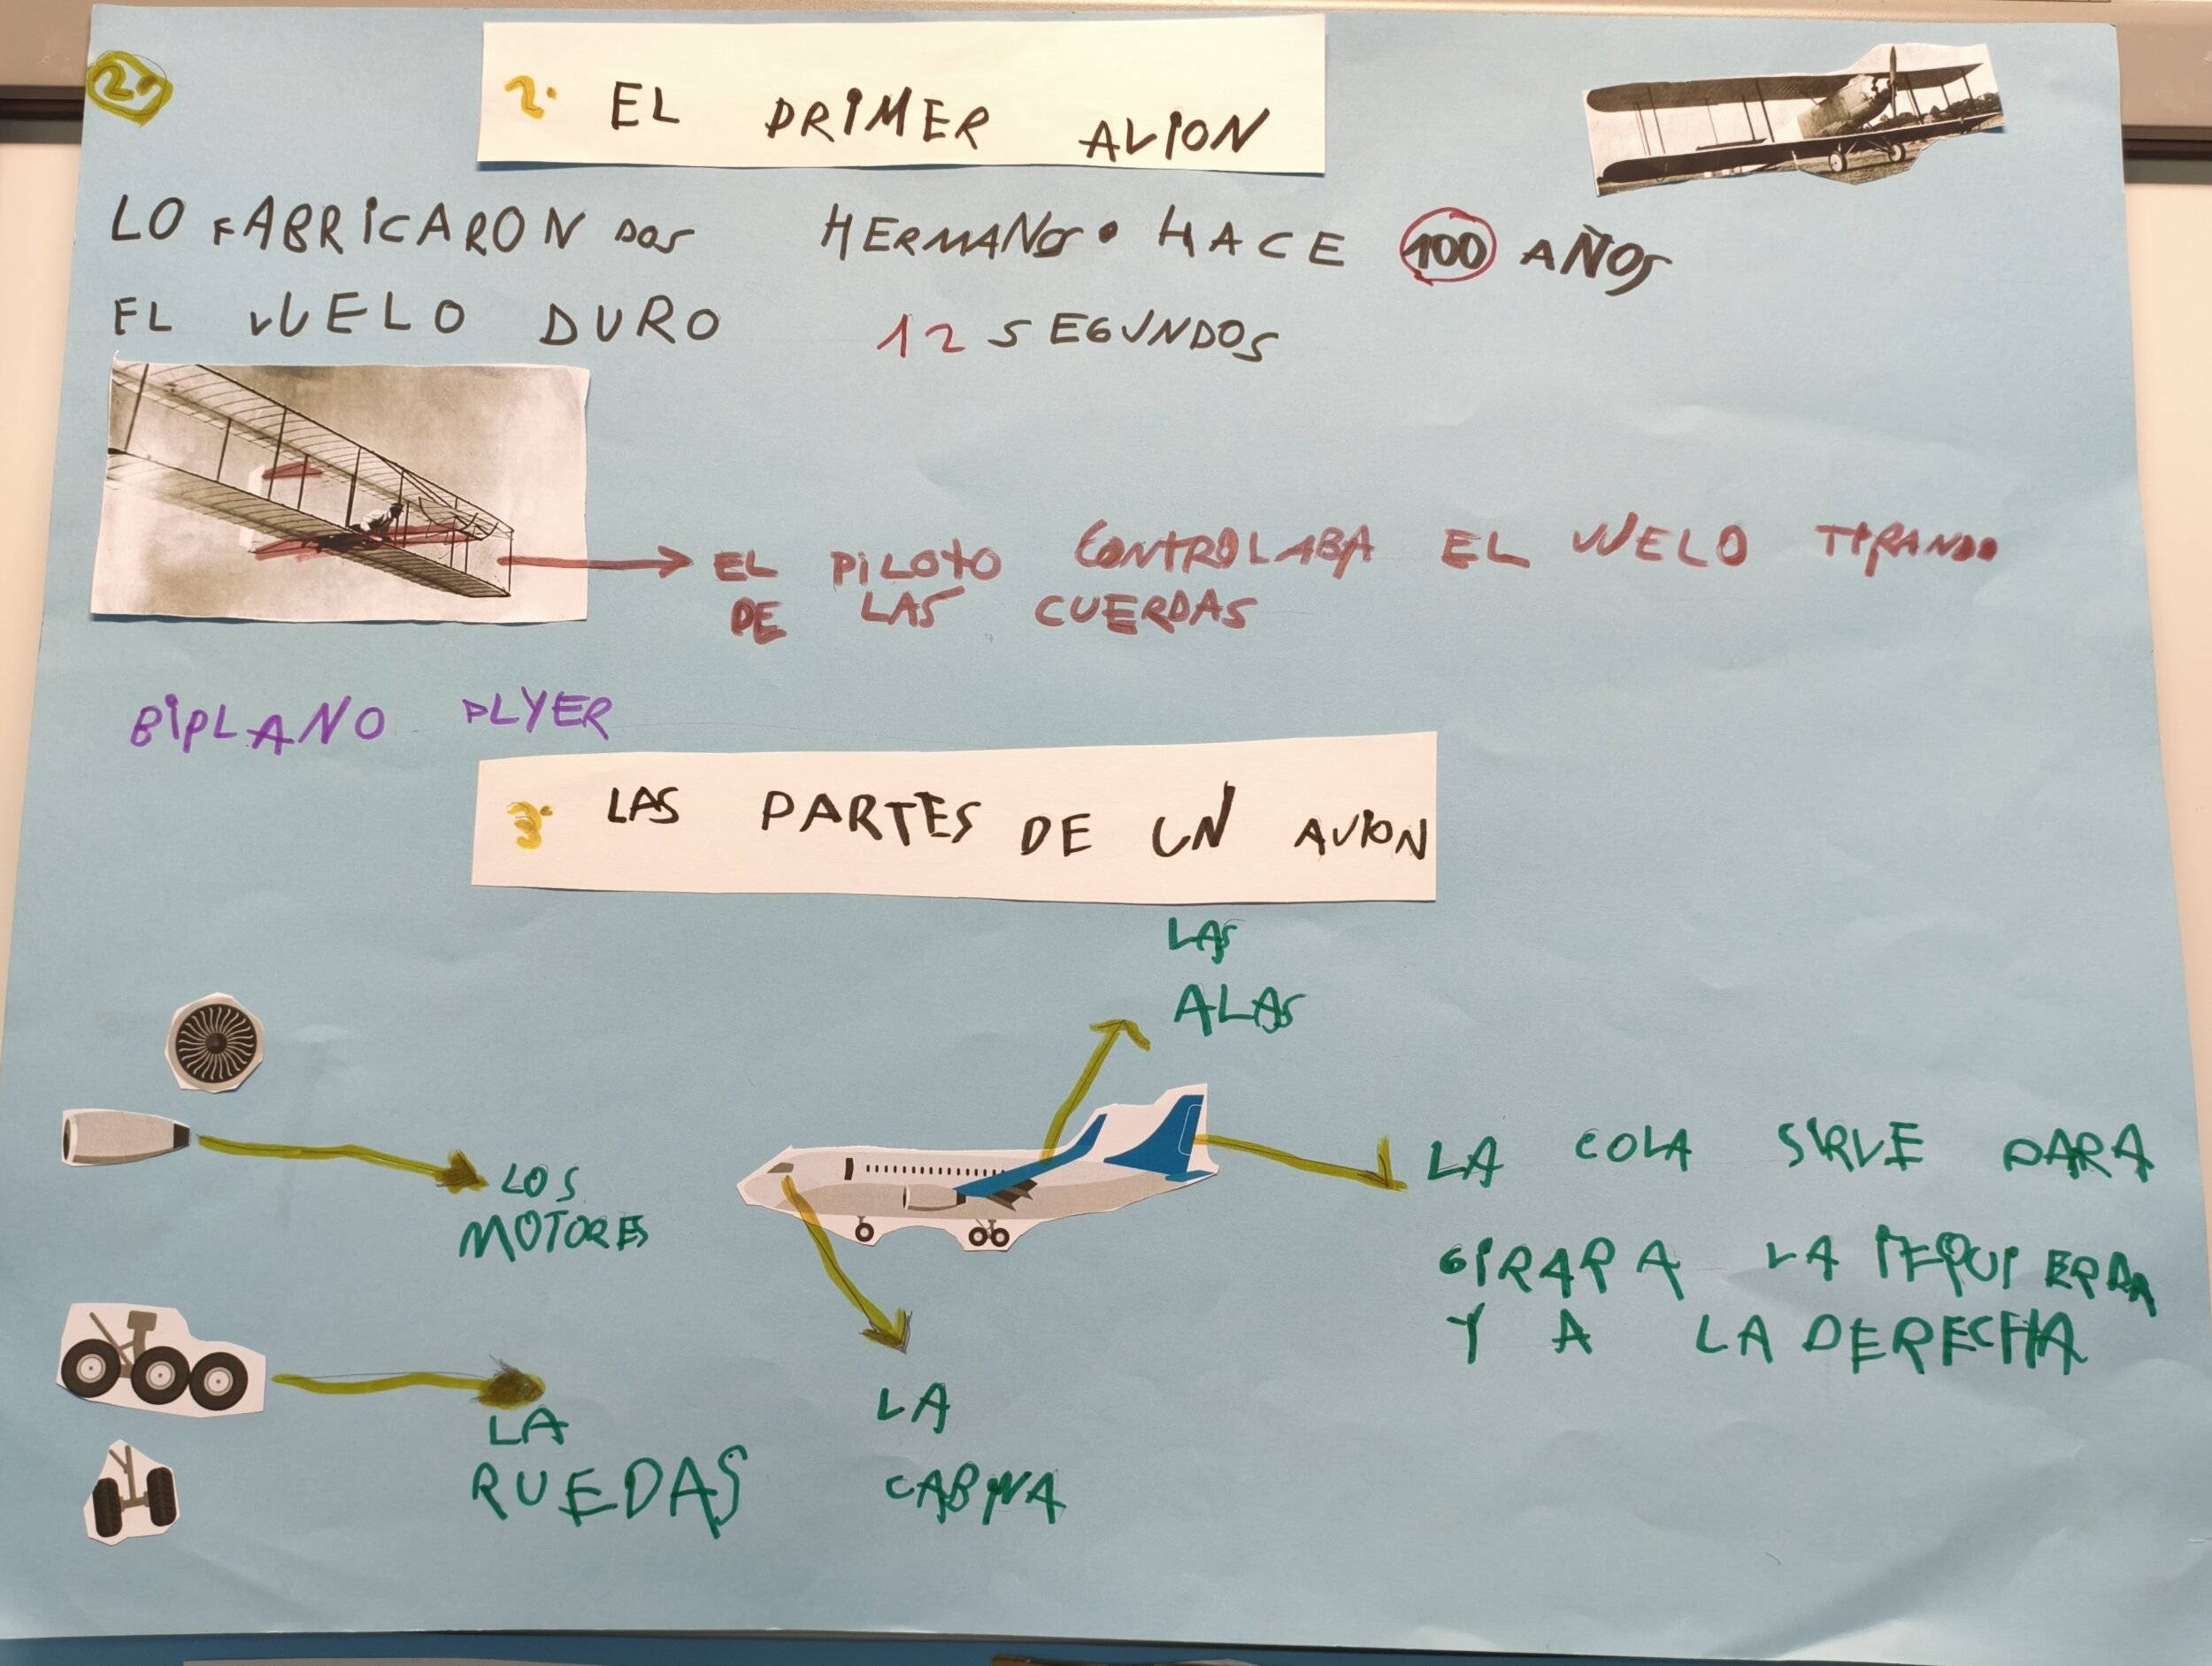 2.
2. EL PRIMER AVION
LO FABRICARON DOS HERMANOS. HACE 100 AÑOS
EL VUELO DURO 12 SEGUNDOS
EL PILOTO CONTROLABA EL VUELO TIRANDO
DE LAS CUERDAS
BIPLANO PLYER
3. LAS PARTES DE UN AVION
LAS
ALAS
LOS
MOTORES
LA COLA SIRVE PARA
GIRAR A LA IZQUIERDA
Y A LA DERECHA
LA
RUEDAS
LA
CABINA